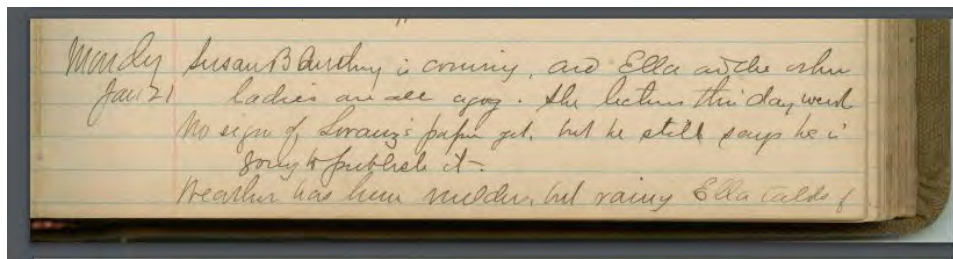 Monday Susan B Anthony is coming, and Ella and the other
Jan 21 ladies are all agog. She lectures this day week
No sign of Lorang's paper yet, but he still says he is
going to publish it -
Weather has been milder, but rainy Ella calls